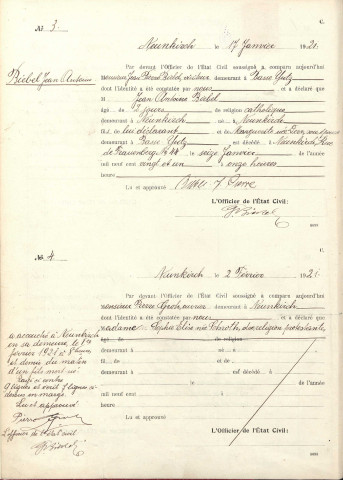 C.
№ 3
Neunkirch le 17 Janvier 1921
Par devant l'Officier de l'État Civil soussigné a comparu aujourd'hui
Biebel Jean Antoine
Monsieur Jean Pierre demeurant à Basse Yutz
dont l'identité a été constatée par nous et a déclaré que
M Jean Antoine Biebel
âgé de jours de religion catholique
demeurant à Neunkirch né à Neunkirch
fils du déclarant et Marguerite née
demeurant à Basse Yutz est décédé à Neunkirch Rue
de Frauenberg № 44 le seize Janvier de l'année
mil neuf cent vingt et un à onze heures
heure
Lu et approuvé
Pierre
L'Officier de l'État Civil:
C.
№ 4
Neunkirch le 2 Février 1921
Par devant l'Officier de l'État Civil soussigné a comparu aujourd'hui
Monsieur Pierre demeurant à Neunkirch
dont l'identité a été constatée par nous et a déclaré que
Madame Sophie née de religion protestante
âgé de de religion
demeurant à né à
fils
demeurant est décédé à
le de l'année
mil neuf cent à
heure
Lu et approuvé
L'Officier de l'État Civil:
a accouché à Neunkirch
en sa demeure le 1er
février 1921 à 8 heures
et demie du matin
d'un fils mort né
Rayé ci contre
lignes et écrit 7 lignes
dessus en marge.
Lu et approuvé
Pierre
L'officier de l'état civil